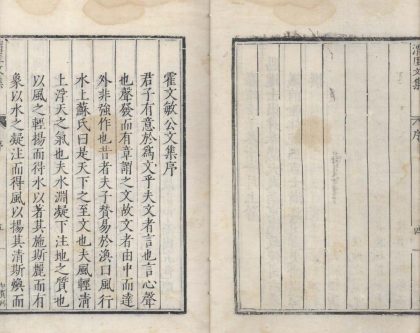 霍文敏公文集序
君子有意於為文乎夫文者言也言心聲
也聲發而有章謂之文故文者由中而達
外非強作也昔者夫子贊易於渙曰風行
水上蘇氏曰是天下之至文也夫風輕清
上浮天之氣也夫水淵凝下注地之質也
以風之輕揚而得水以著其施斯麗而有
象以水之凝注而得風以揚其清斯煥而
序
文集
序